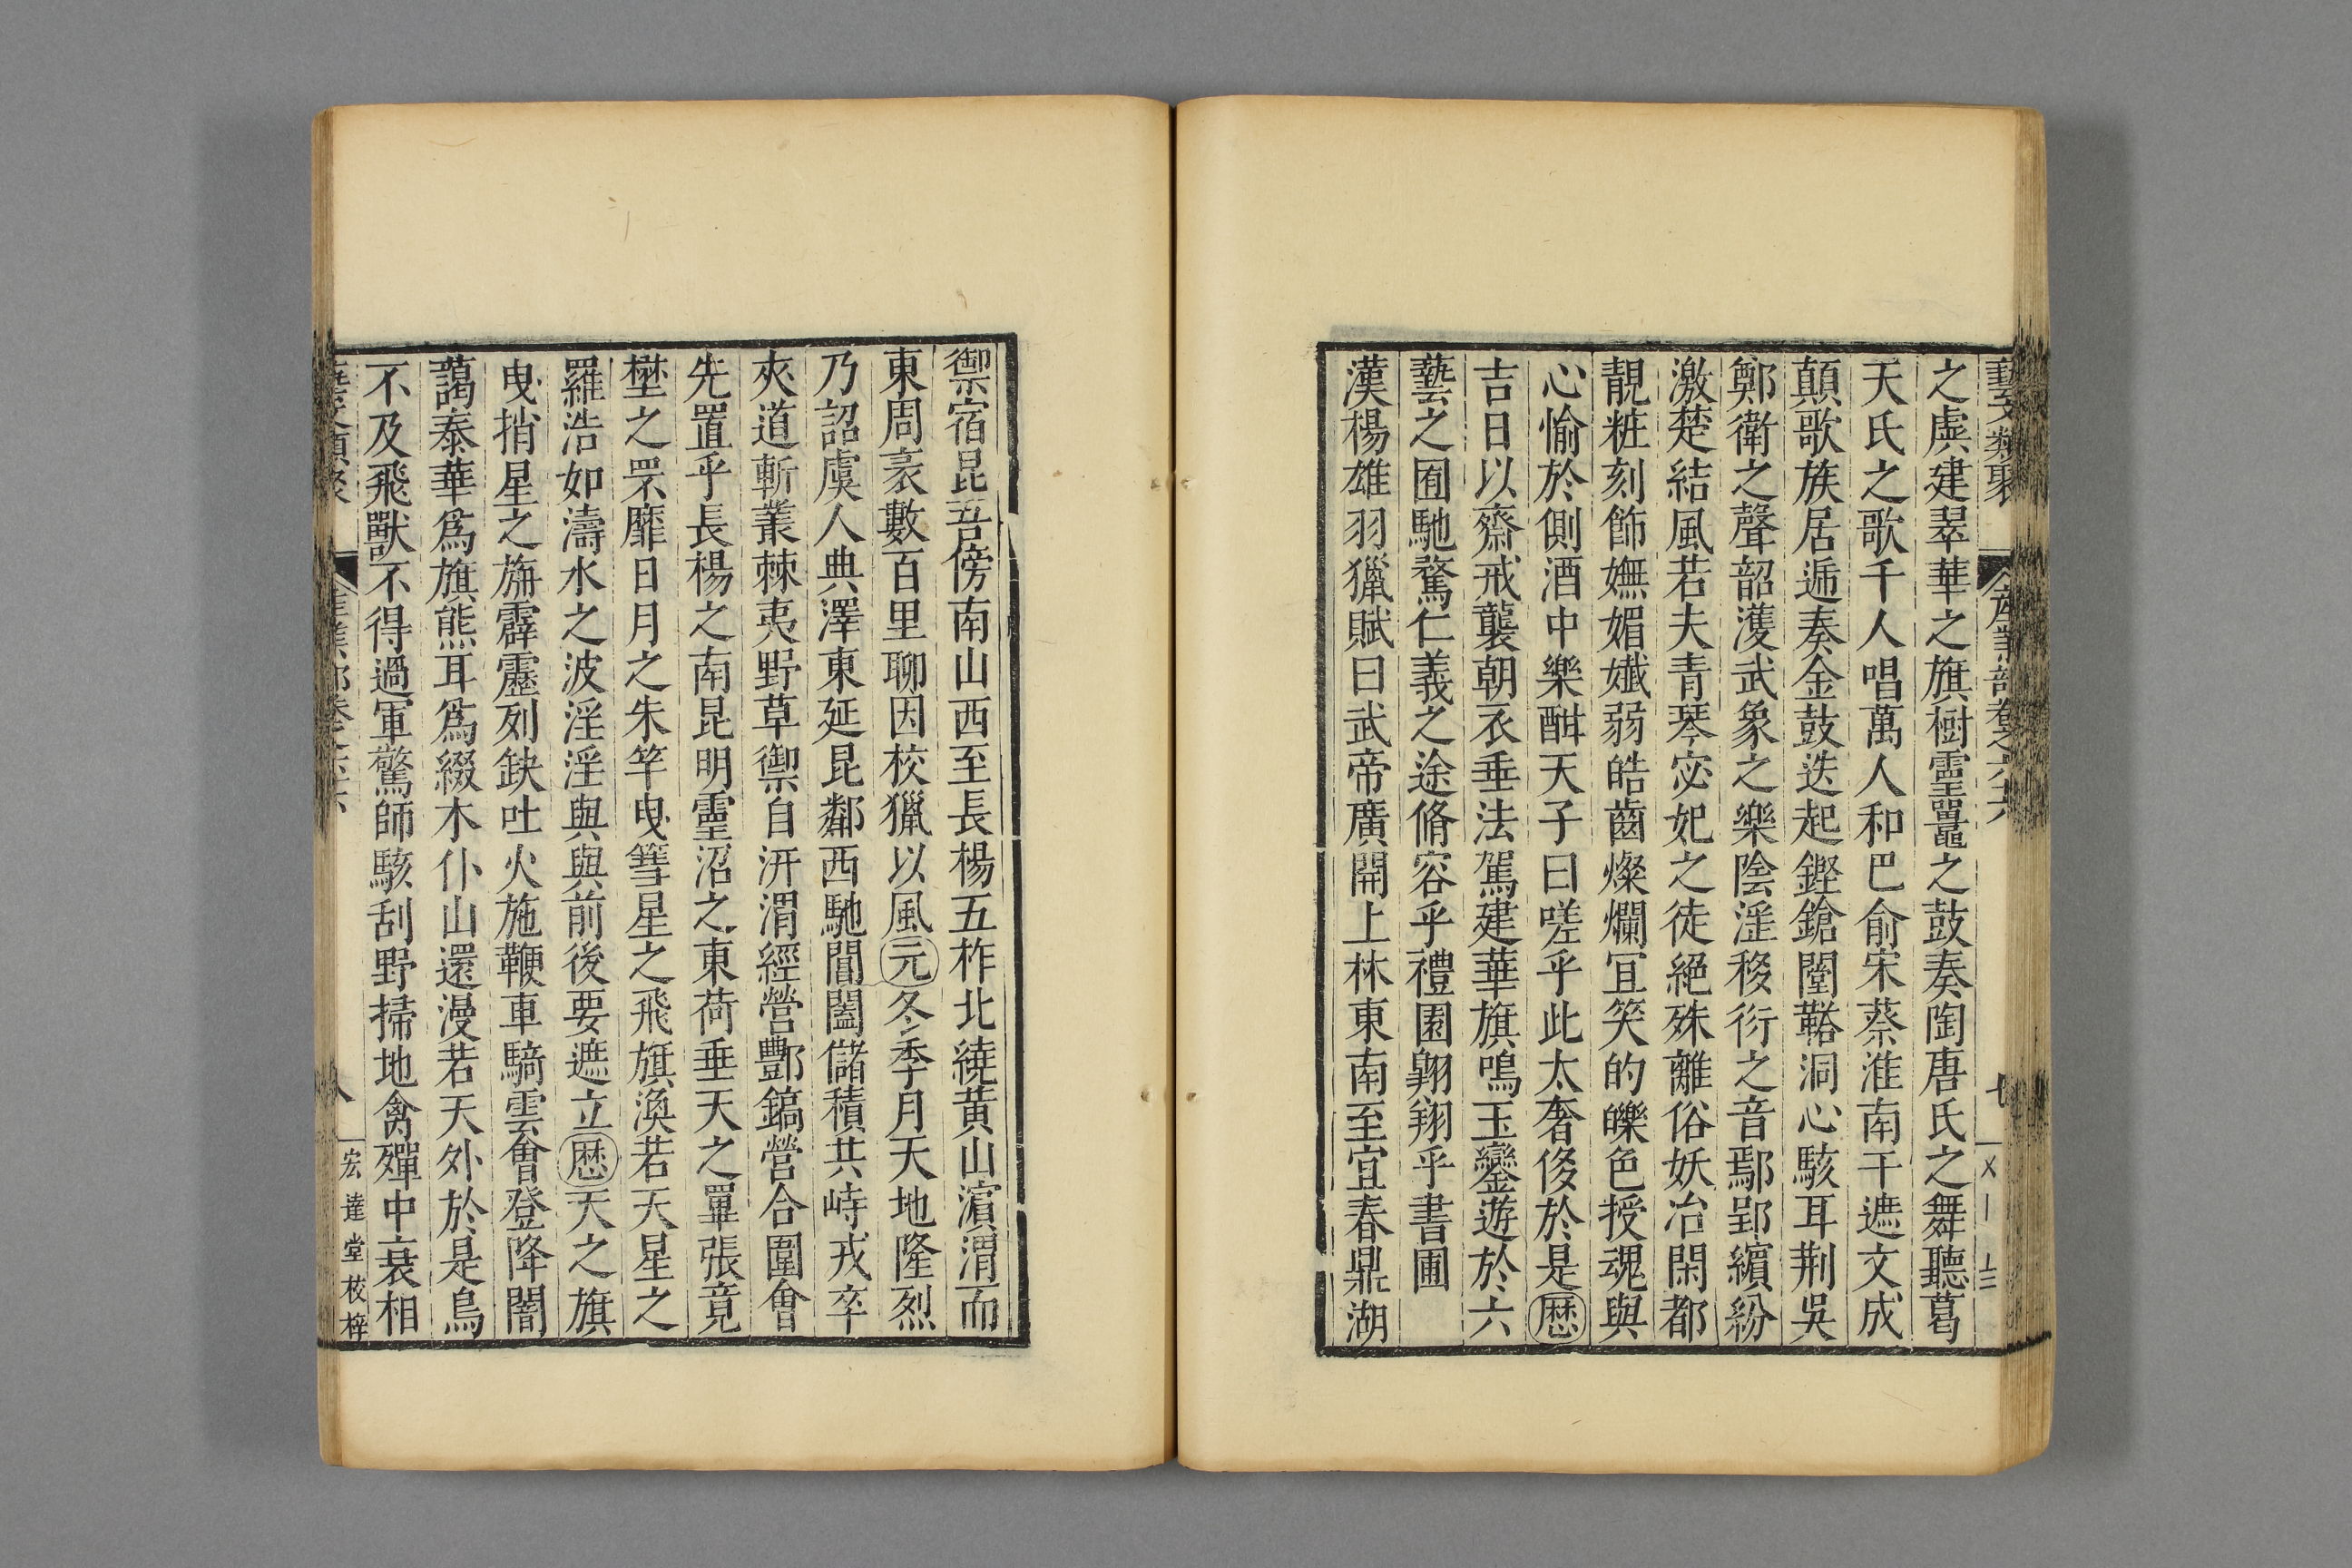 藝文類聚 産業部卷之六六 七
之虡建翠華之旗樹靈鼉之鼓奏陶唐氏之舞聽葛
天氏之歌千人唱萬人和巴俞宋蔡淮南干遮文成
顛歌族居遞奏金鼓迭起鏗鎗闛鞈洞心駭耳荆吳
鄭衛之聲韶濩武象之樂陰淫移衍之音鄢郢繽紛
激楚結風若夫青琴宓妃之徒絕殊離俗妖冶閑都
靚粧刻飾嫵媚孅弱皓齒燦爛冝笑的皪色授魂與
心愉於側酒中樂酣天子曰嗟乎此太奢侈於是歷
吉日以齋戒襲朝衣垂法駕建華旗鳴玉鑾遊於六
藝之囿馳騖仁義之途脩容乎禮園翺翔乎書圃
漢楊雄羽獵賦曰武帝廣開上林東南至宜春鼎湖
禦宿昆吾傍南山西至長楊五柞北繞黃山濵渭而
東周袤數百里聊因校獵以風元冬季月天地隆烈
乃詔虞人典澤東延昆鄰西馳閶闔儲積共峙戎卒
夾道斬叢棘夷野草禦自汧渭經營酆鎬營合圍會
先置乎長楊之南昆明靈沼之東荷垂天之罼張竟
壄之罘靡日月之朱竿曳篲星之飛旗渙若天星之
羅浩如濤水之波淫淫與與前後要遮立歷天之旗
曳捎星之旃霹靂列缺吐火施鞭車騎雲會登降闇
藹泰華爲旗熊耳爲綴木仆山還漫若天外於是鳥
不及飛獸不得過軍驚師駭刮野掃地禽殫中衰相
藝文類聚 産業部卷之六六 八 宏達堂校梓